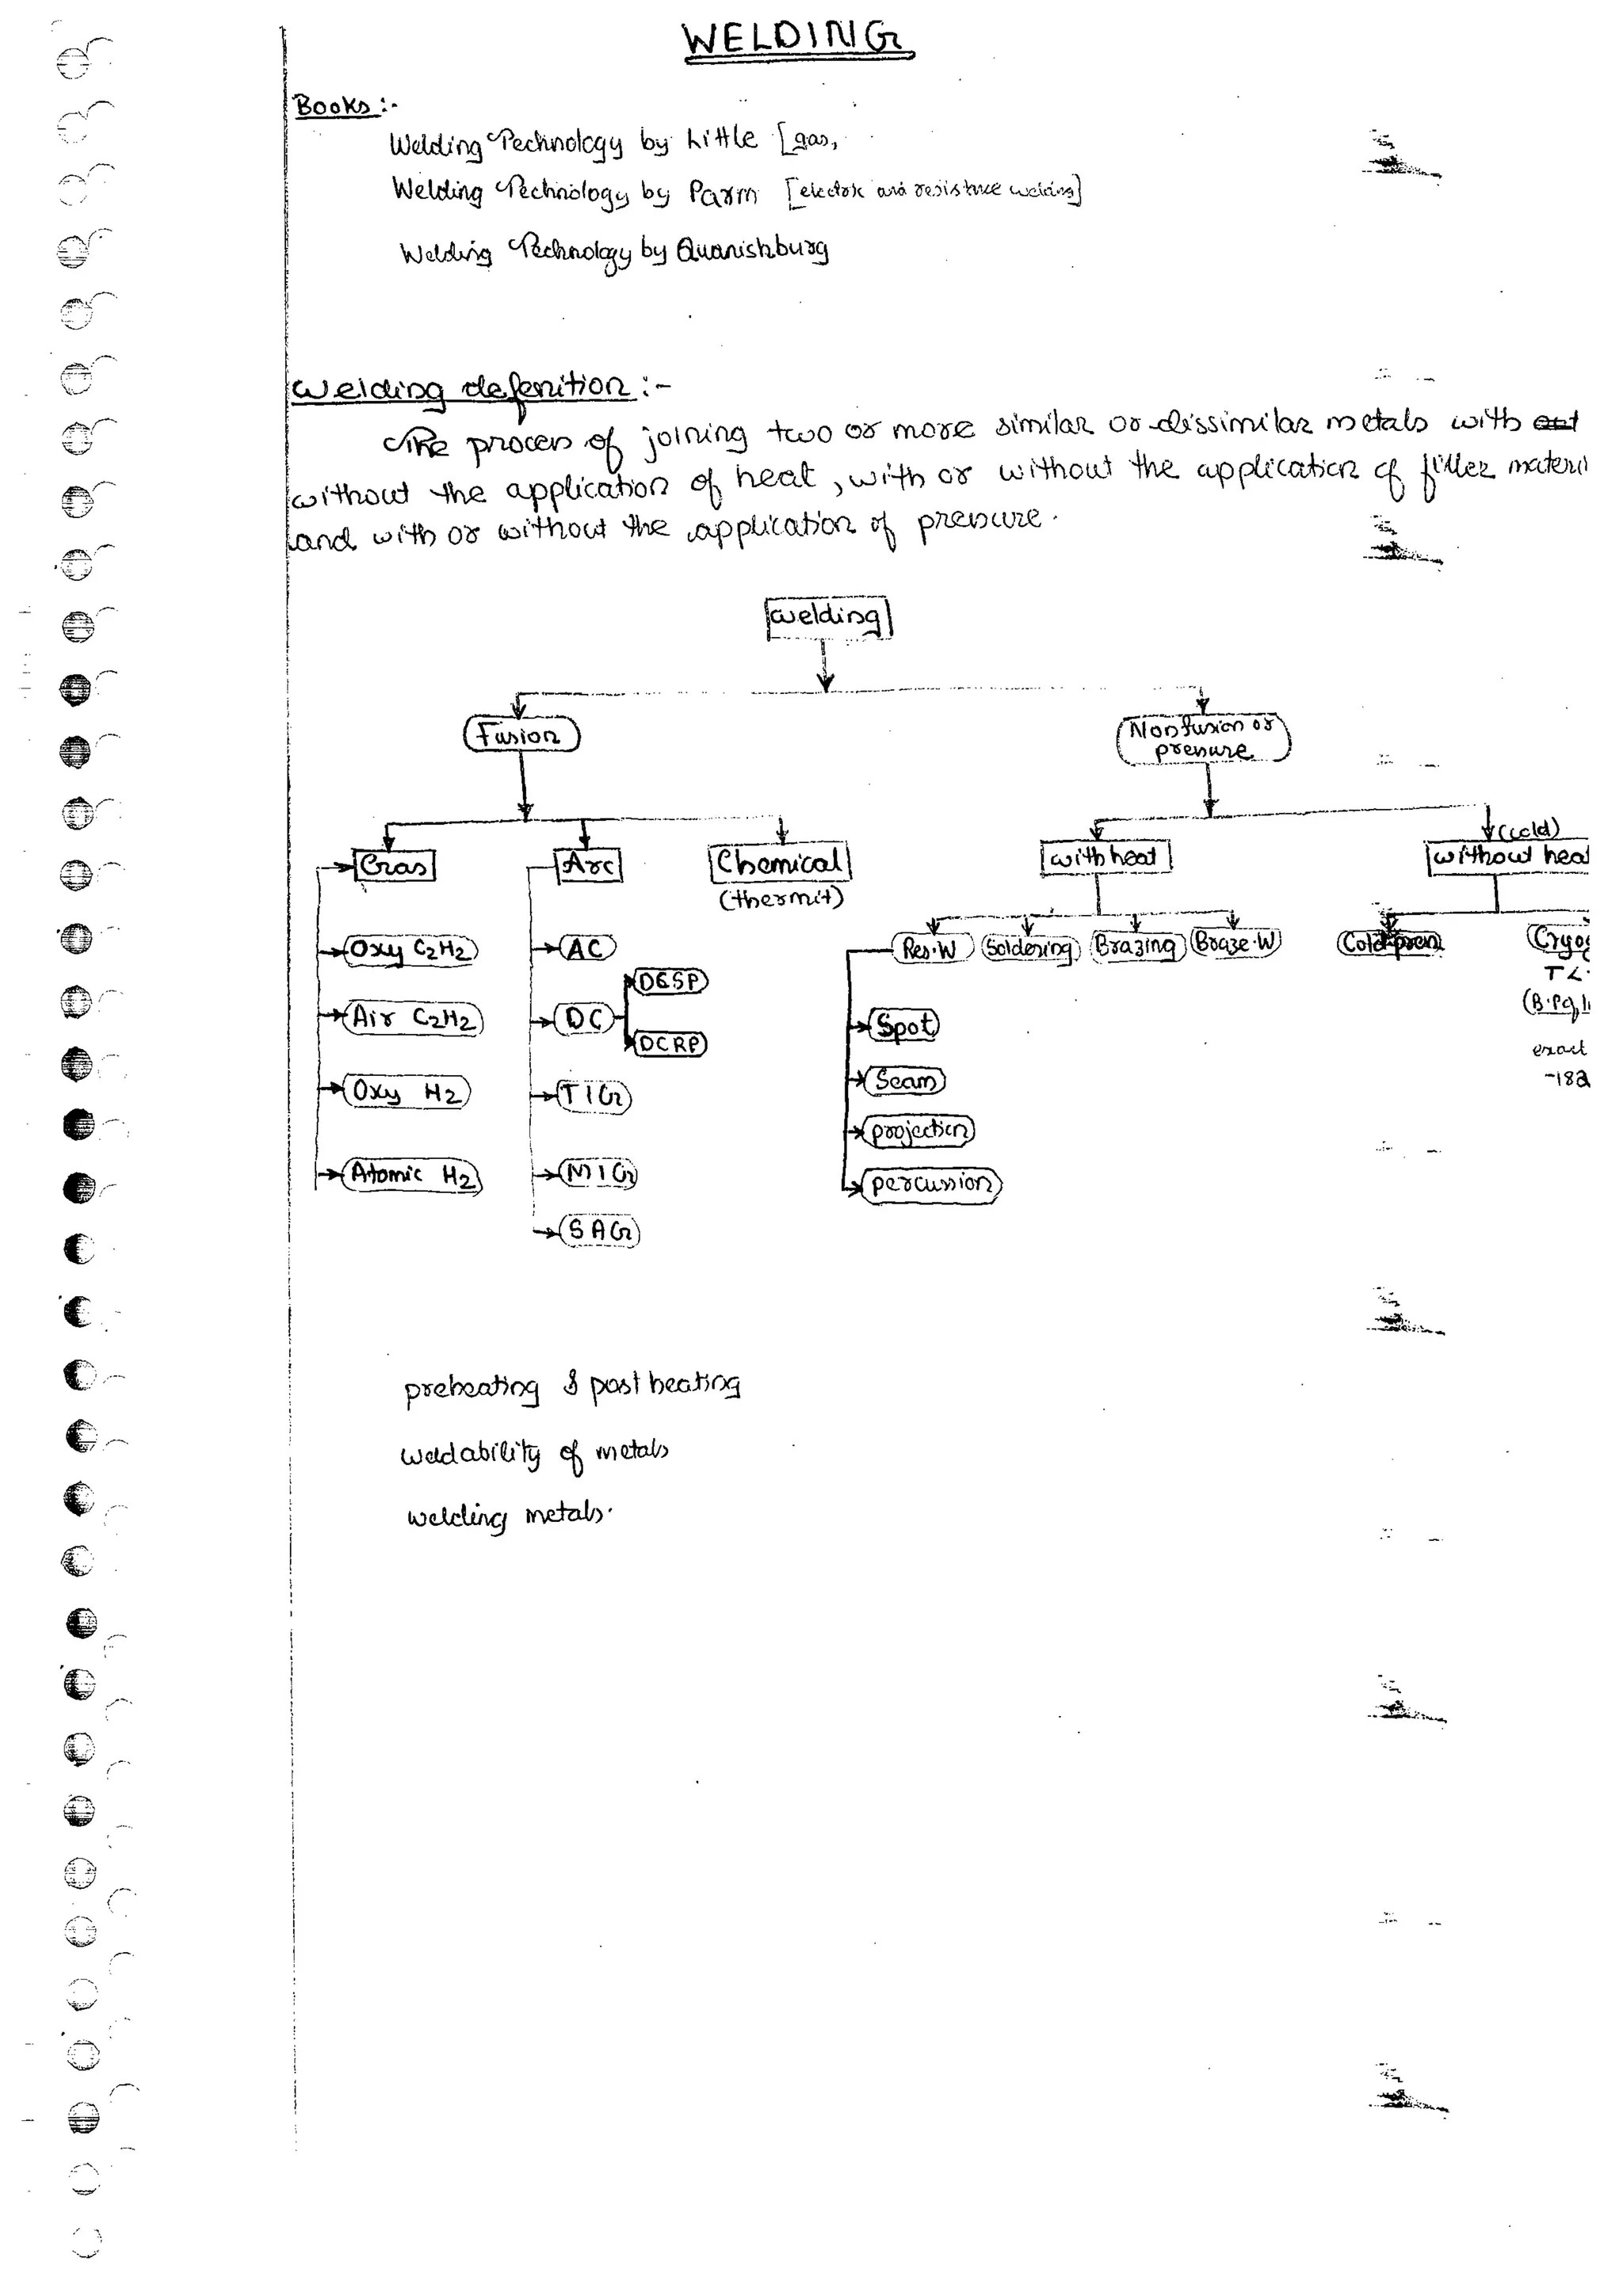 WELDING
Books :-
Welding Technology by Little [gas,
Welding Technology by Parm [electric and resistance welding]
Welding Technology by Quanishburg
Welding defenition :-
The process of joining two or more similar or dissimilar metals with
without the application of heat, with or without the application of filler materi
and with or without the application of pressure.
welding
Fusion
Non fusion or
pressure
(cold)
Gas
Arc
Chemical
with heat
without hea
(thermit)
Oxy C2H2
AC
Res.W
Soldering
Brazing
Braze.W
Cold pren
Cryog
T <
DCSP
(B.Pg,
Air C2H2
DC
DCRP
Spot
exact
-182
Seam
Oxy H2
TIG
projection
Atomic H2
MIG
percussion
SAG
preheating & post heating
weldability of metals
welding metals.